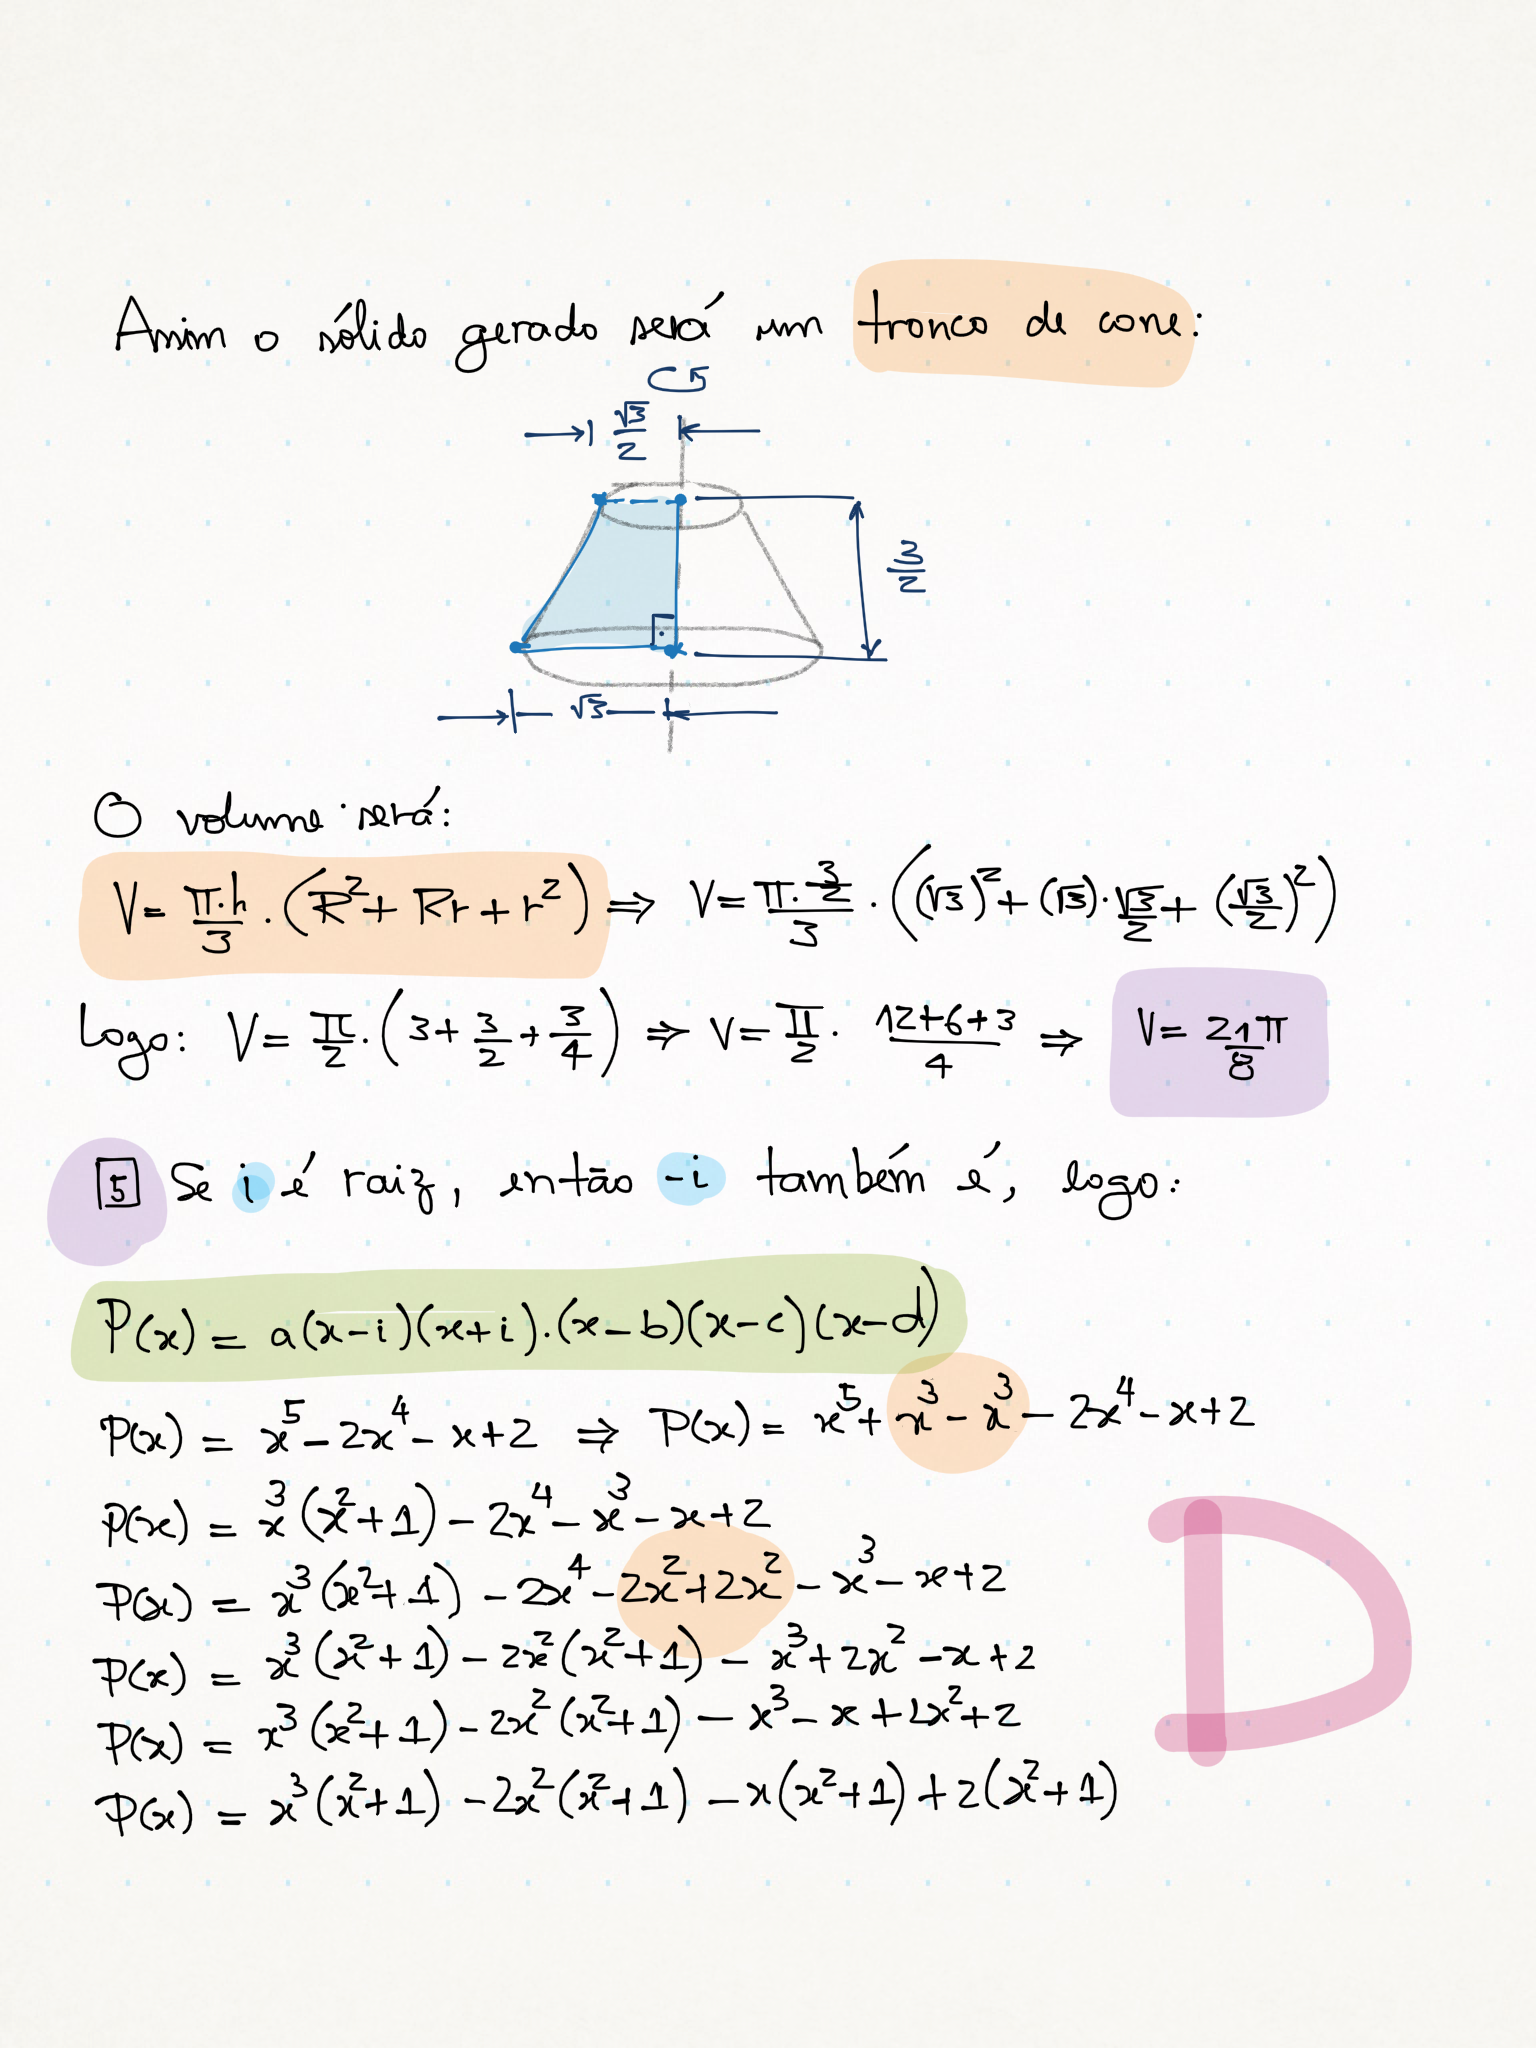 Assim o sólido gerado será um tronco de cone:
√3/2
3/2
√3
O volume será:
V = π·h/3 · (R² + Rr + r²) ⇒ V = π·3/2/3 · ((√3)² + (√3)·√3/2 + (√3/2)²)
Logo: V = π/2 · (3 + 3/2 + 3/4) ⇒ V = π/2 · 12+6+3/4 ⇒ V = 21π/8
5 Se i é raiz, então -i também é, logo:
P(x) = a(x-i)(x+i)·(x-b)(x-c)(x-d)
P(x) = x⁵ - 2x⁴ - x + 2 ⇒ P(x) = x⁵ + x³ - x³ - 2x⁴ - x + 2
P(x) = x³(x²+1) - 2x⁴ - x³ - x + 2
P(x) = x³(x²+1) - 2x⁴ - 2x² + 2x² - x³ - x + 2
P(x) = x³(x²+1) - 2x²(x²+1) - x³ + 2x² - x + 2
P(x) = x³(x²+1) - 2x²(x²+1) - x³ - x + 2x² + 2
P(x) = x³(x²+1) - 2x²(x²+1) - x(x²+1) + 2(x²+1)
D